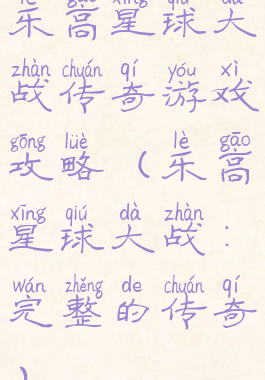 lè gāo xīng qiú dà
乐高星球大
zhàn chuán qí yóu xì
战传奇游戏
gōng lüè lè gāo
攻略(乐高
xīng qiú dà zhàn
星球大战:
wán zhěng de chuán qí
完整的传奇
)